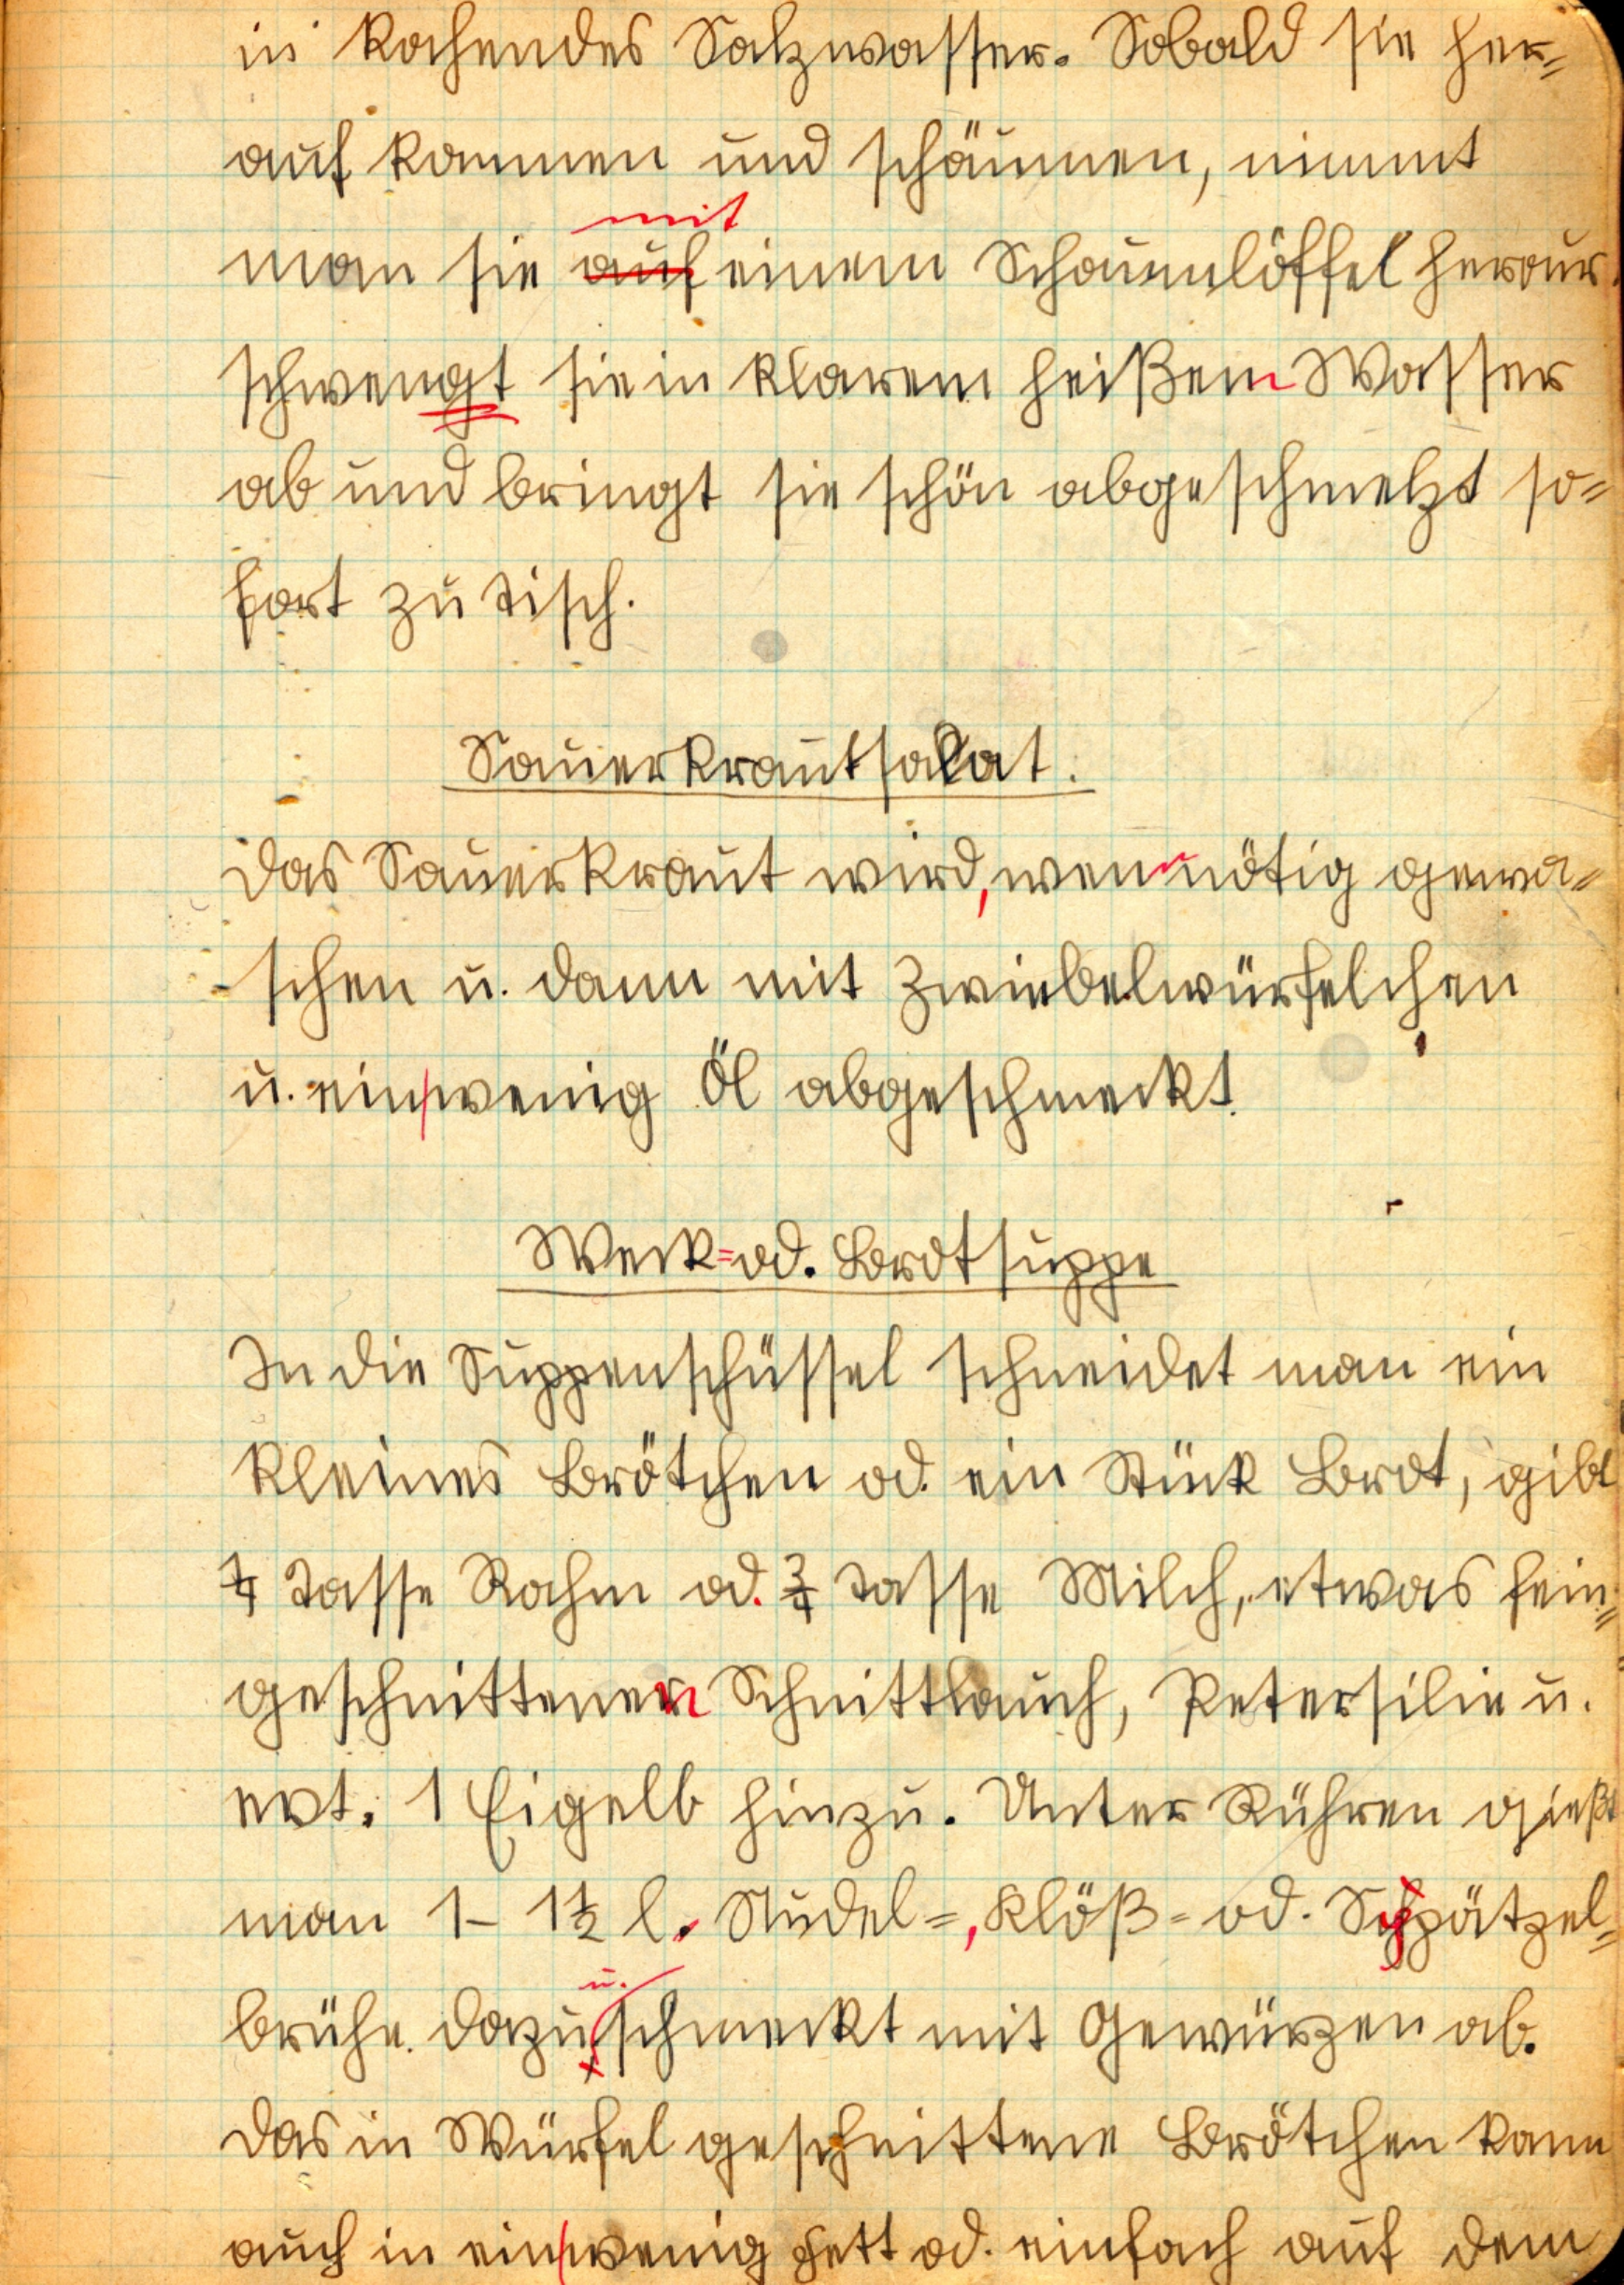 in kochendes Salzwasser. Sobald sie her=
auf kommen und schäumen, nimmt
mit
man sie auf einem Schaumlöffel heraus
schwengt sie in klarem heißem Wasser
ab und bringt sie schön abgeschmelzt so=
fort zu Tisch.
Sauerkrautsalat.
Das Sauerkraut wird, wenn nötig gewa=
schen u. dann mit Zwiebelwürfelchen
u. ein wenig Öl abgeschmeckt.
Weck= od. Brotsuppe
In die Suppenschüssel schneidet man ein
kleines Brötchen od. ein Stück Brot, gibt
1/4 Tasse Rahm od. 3/4 Tasse Milch, etwas fein=
geschnittenen Schnittlauch, Petersilie u.
evt. 1 Eigelb hinzu. Unter Rühren gießt
man 1 - 1 1/2 l. Nudel=, Klöß= od. Spätzel=
u.
brühe dazu schmeckt mit Gewürzen ab.
Das in Würfel geschnittene Brötchen kann
auch in ein wenig Fett od. einfach auf dem